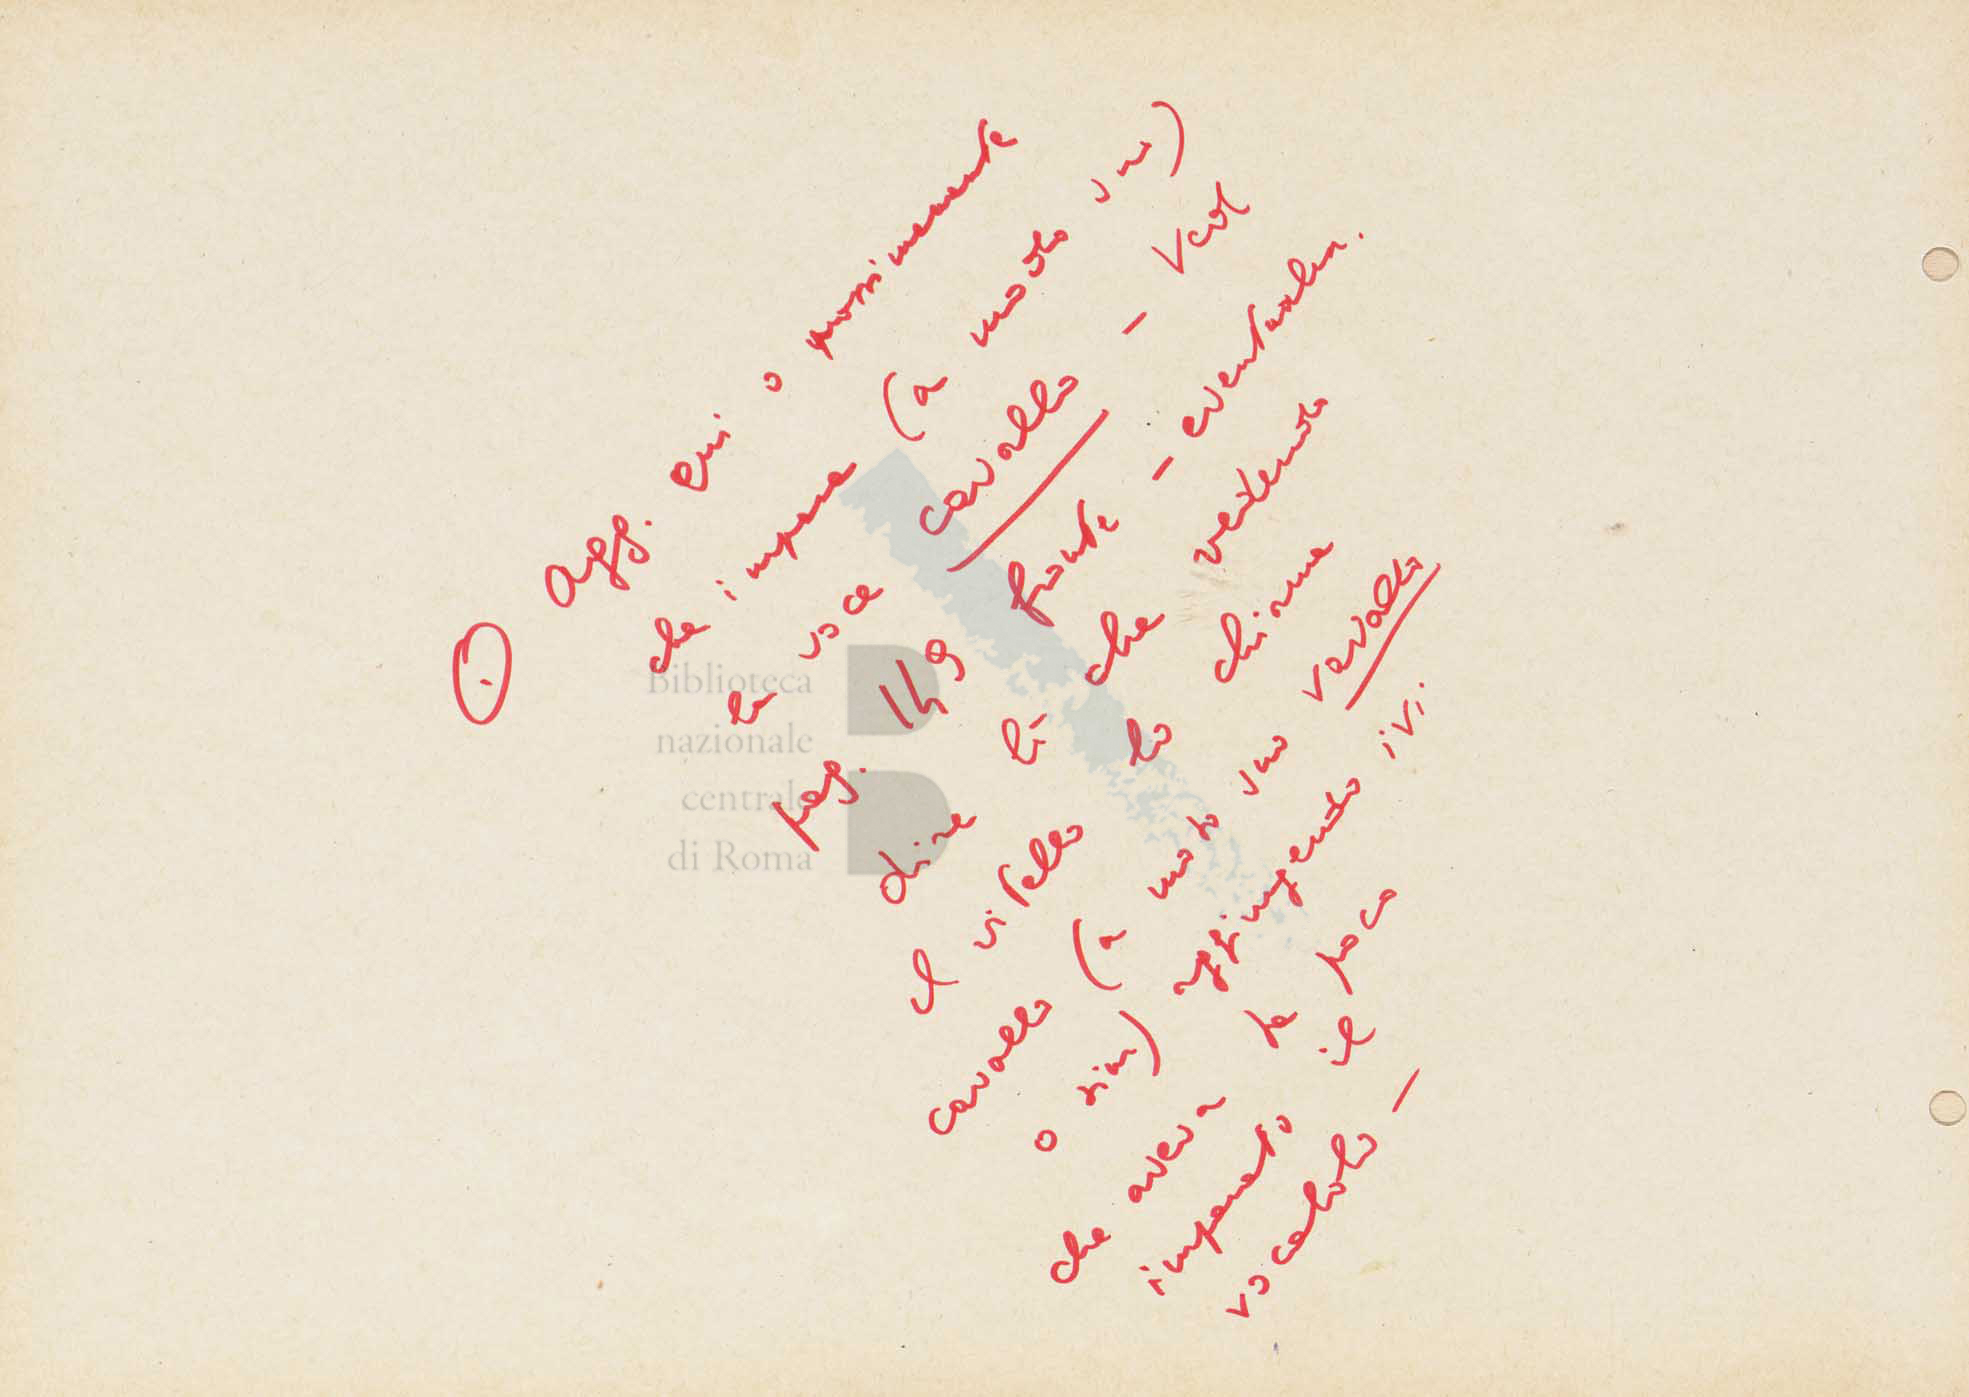 agg. qui o prossimamente
che impara (a modo suo)
la voce cavallo –
pag. 149 fronte – eventualm.
dire lì che vedendo
il vitello lo chiama
cavallo (a modo suo vavallo
o sim) aggiungendo ivi
che aveva da poco
imparato il
vocabolo –
Biblioteca
nazionale
centrale
di Roma